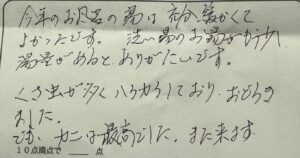 今年のお風呂の湯は充分、暖かくて
よかったです。 洗い場のお湯がもう少し
湯量があると、ありがたいです。
くさ虫が多くハラハラしており、おどろき
ました。
です、カニは最高でした。また来ます。
10点満点で 点